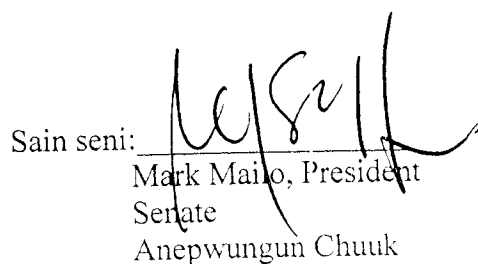 Sain seni:
Mark Mailo, President
Senate
Anepwungun Chuuk